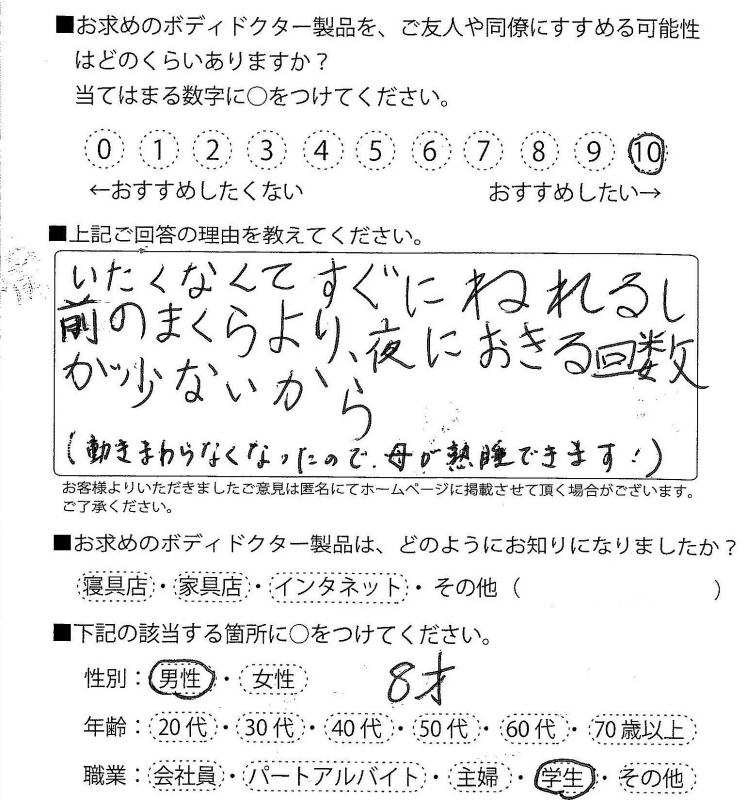 ■お求めのボディドクター製品を、ご友人や同僚にすすめる可能性
はどのくらいありますか？
当てはまる数字に○をつけてください。
0 1 2 3 4 5 6 7 8 9 10
←おすすめしたくない おすすめしたい→
■上記ご回答の理由を教えてください。
いたくなくてすぐにねれるし
前のまくらより、夜におきる回数
が少ないから
(動きまわらなくなったので、母が熟睡できます!)
お客様よりいただきましたご意見は匿名にてホームページに掲載させて頂く場合がございます。
ご了承ください。
■お求めのボディドクター製品は、どのようにお知りになりましたか？
寝具店・家具店・インタネット・その他（ ）
■下記の該当する箇所に○をつけてください。
性別：男性・女性 8才
年齢：20代・30代・40代・50代・60代・70歳以上
職業：会社員・パートアルバイト・主婦・学生・その他